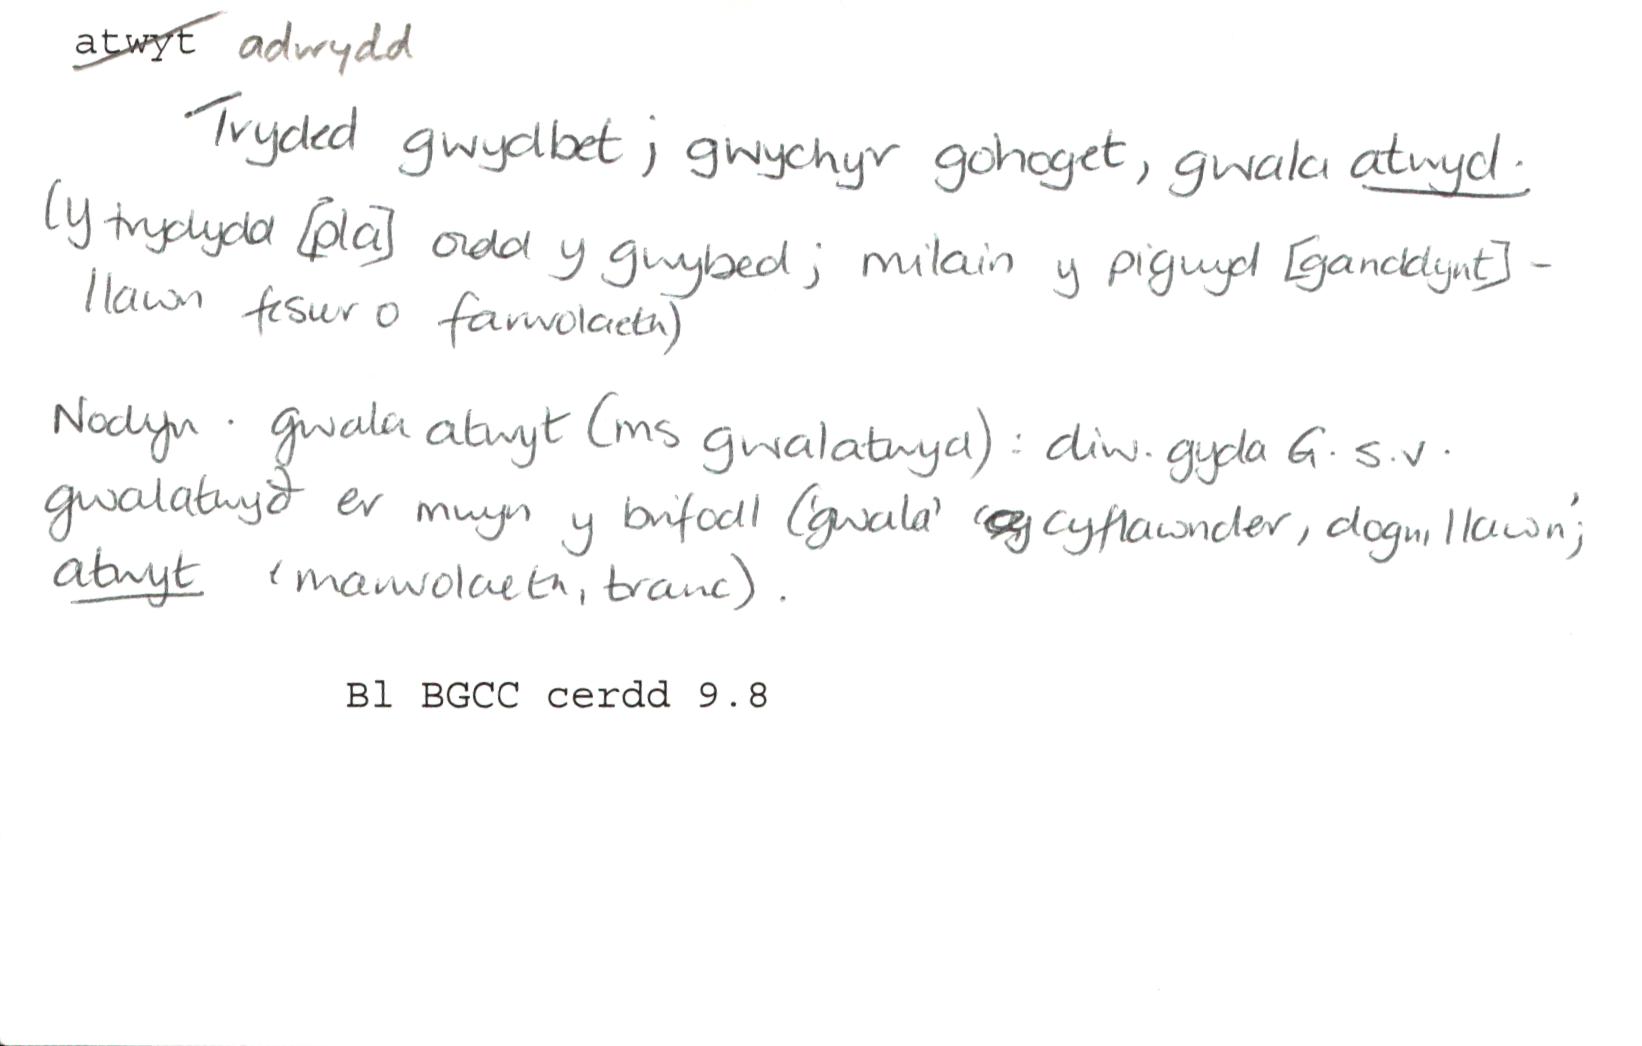 atwyt adwydd
Tryded gwydbet; gwychyr gohoget, gwala atwyd.
(y trydydd [pla] oedd y gwybed; milain y pigwyd [ganddynt] -
llawn fesur o farwolaeth)
Nodyn. gwala atwyt (ms gwalatwyd): diw. gyda G. s.v.
gwalatwyđ er mwyn y brifodl ('gwala' 'cyflawnder, dogn, llawn';
atwyt 'marwolaeth, tranc).
Bl BGCC cerdd 9.8